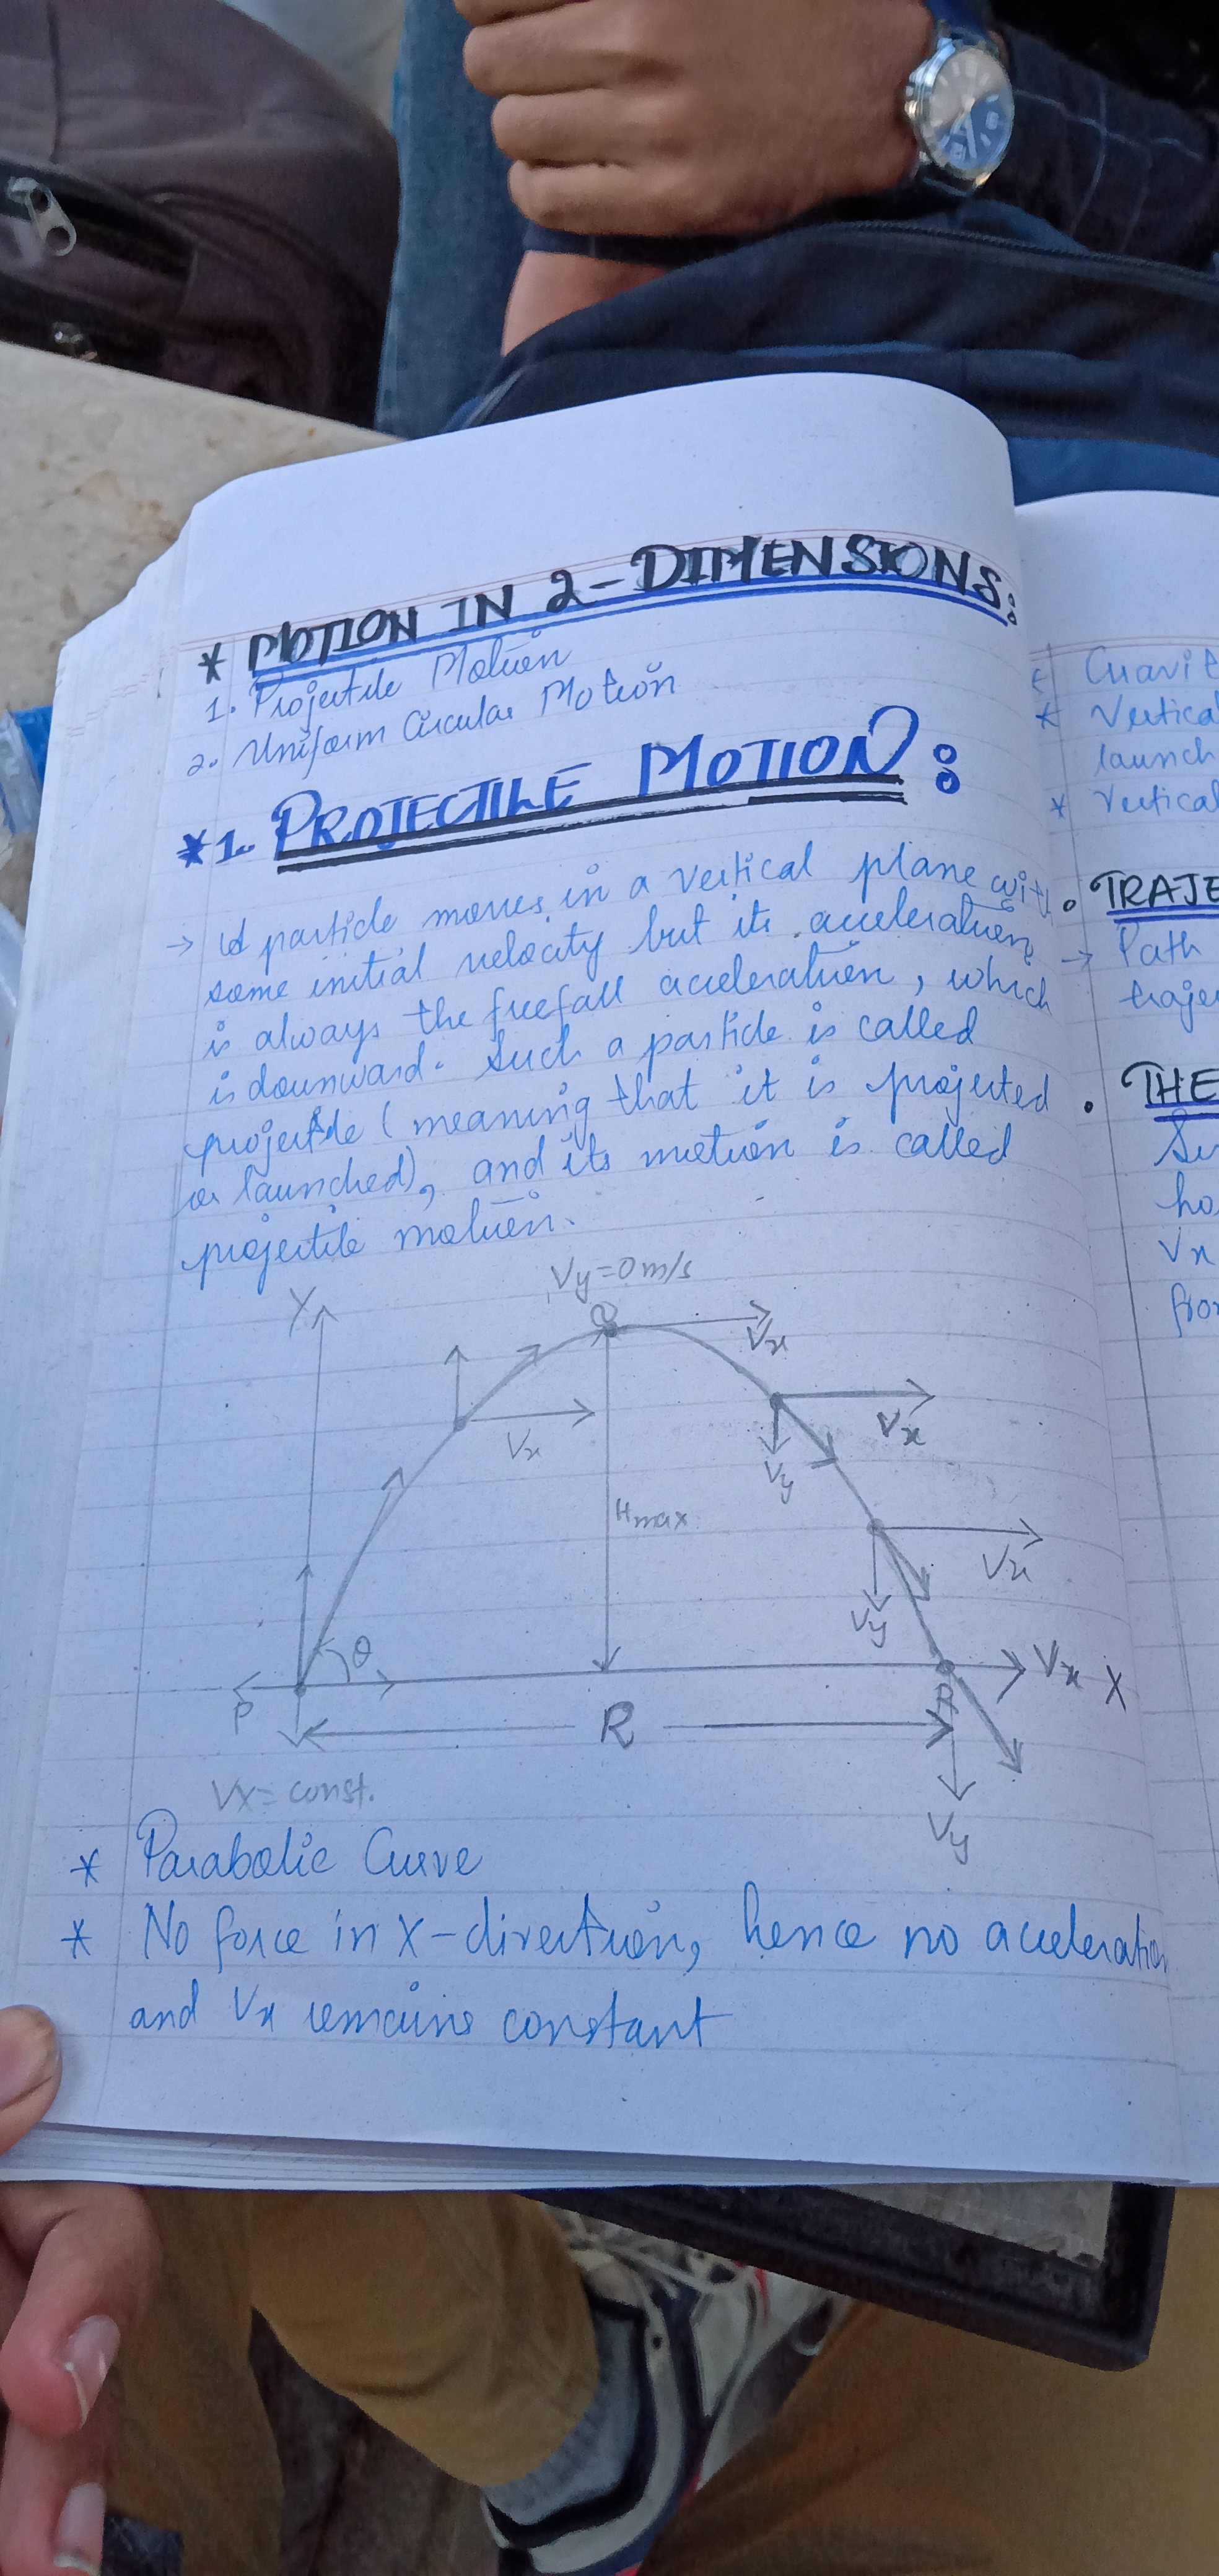 * MOTION IN 2-DIMENSIONS:
1. Projectile Motion
2. Uniform Circular Motion
*1. PROJECTILE MOTION:
→ A particle moves in a vertical plane with
some initial velocity but its acceleration
is always the freefall acceleration, which
is downward. Such a particle is called
projectile (meaning that it is projected
or launched), and its motion is called
projectile motion.
Vy=0m/s
Y
Vx
Vx
Vx
Vy
Hmax
Vx
Vy
θ
Vx X
P
R
R
Vx=const.
Vy
* Parabolic Curve
* No force in X-direction, hence no acceleration
and Vx remains constant
* Vertica
launch
* Vertical
• TRAJE
→ Path
traje
• THE
ho
Vx
fro